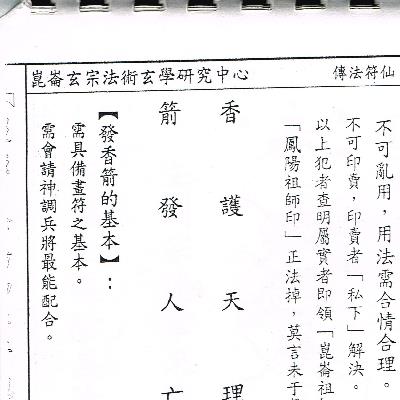 崑崙玄宗法術玄學研究中心
仙符法傳
不可亂用，用法需合情合理。
不可印賣，印賣者「私下」解決。
以上犯者查明屬實者即領「崑崙祖
「鳳陽祖師印」正法掉，莫言未于
香護天理
箭發人亡
【發香箭的基本】：
需具備畫符之基本。
需會請神調兵將最能配合。